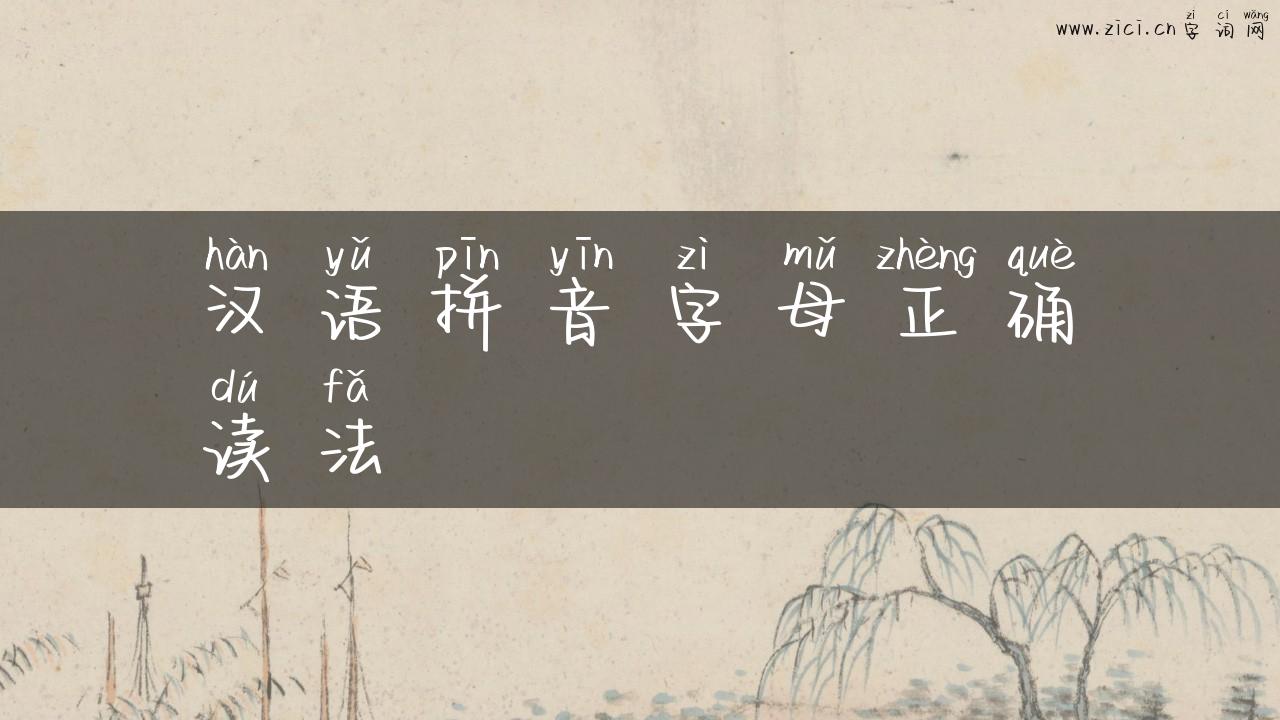 zì cí wǎng
www.zici.cn 字 词 网
hàn yǔ pīn yīn zì mǔ zhèng què
汉 语 拼 音 字 母 正 确
dú fǎ
读 法